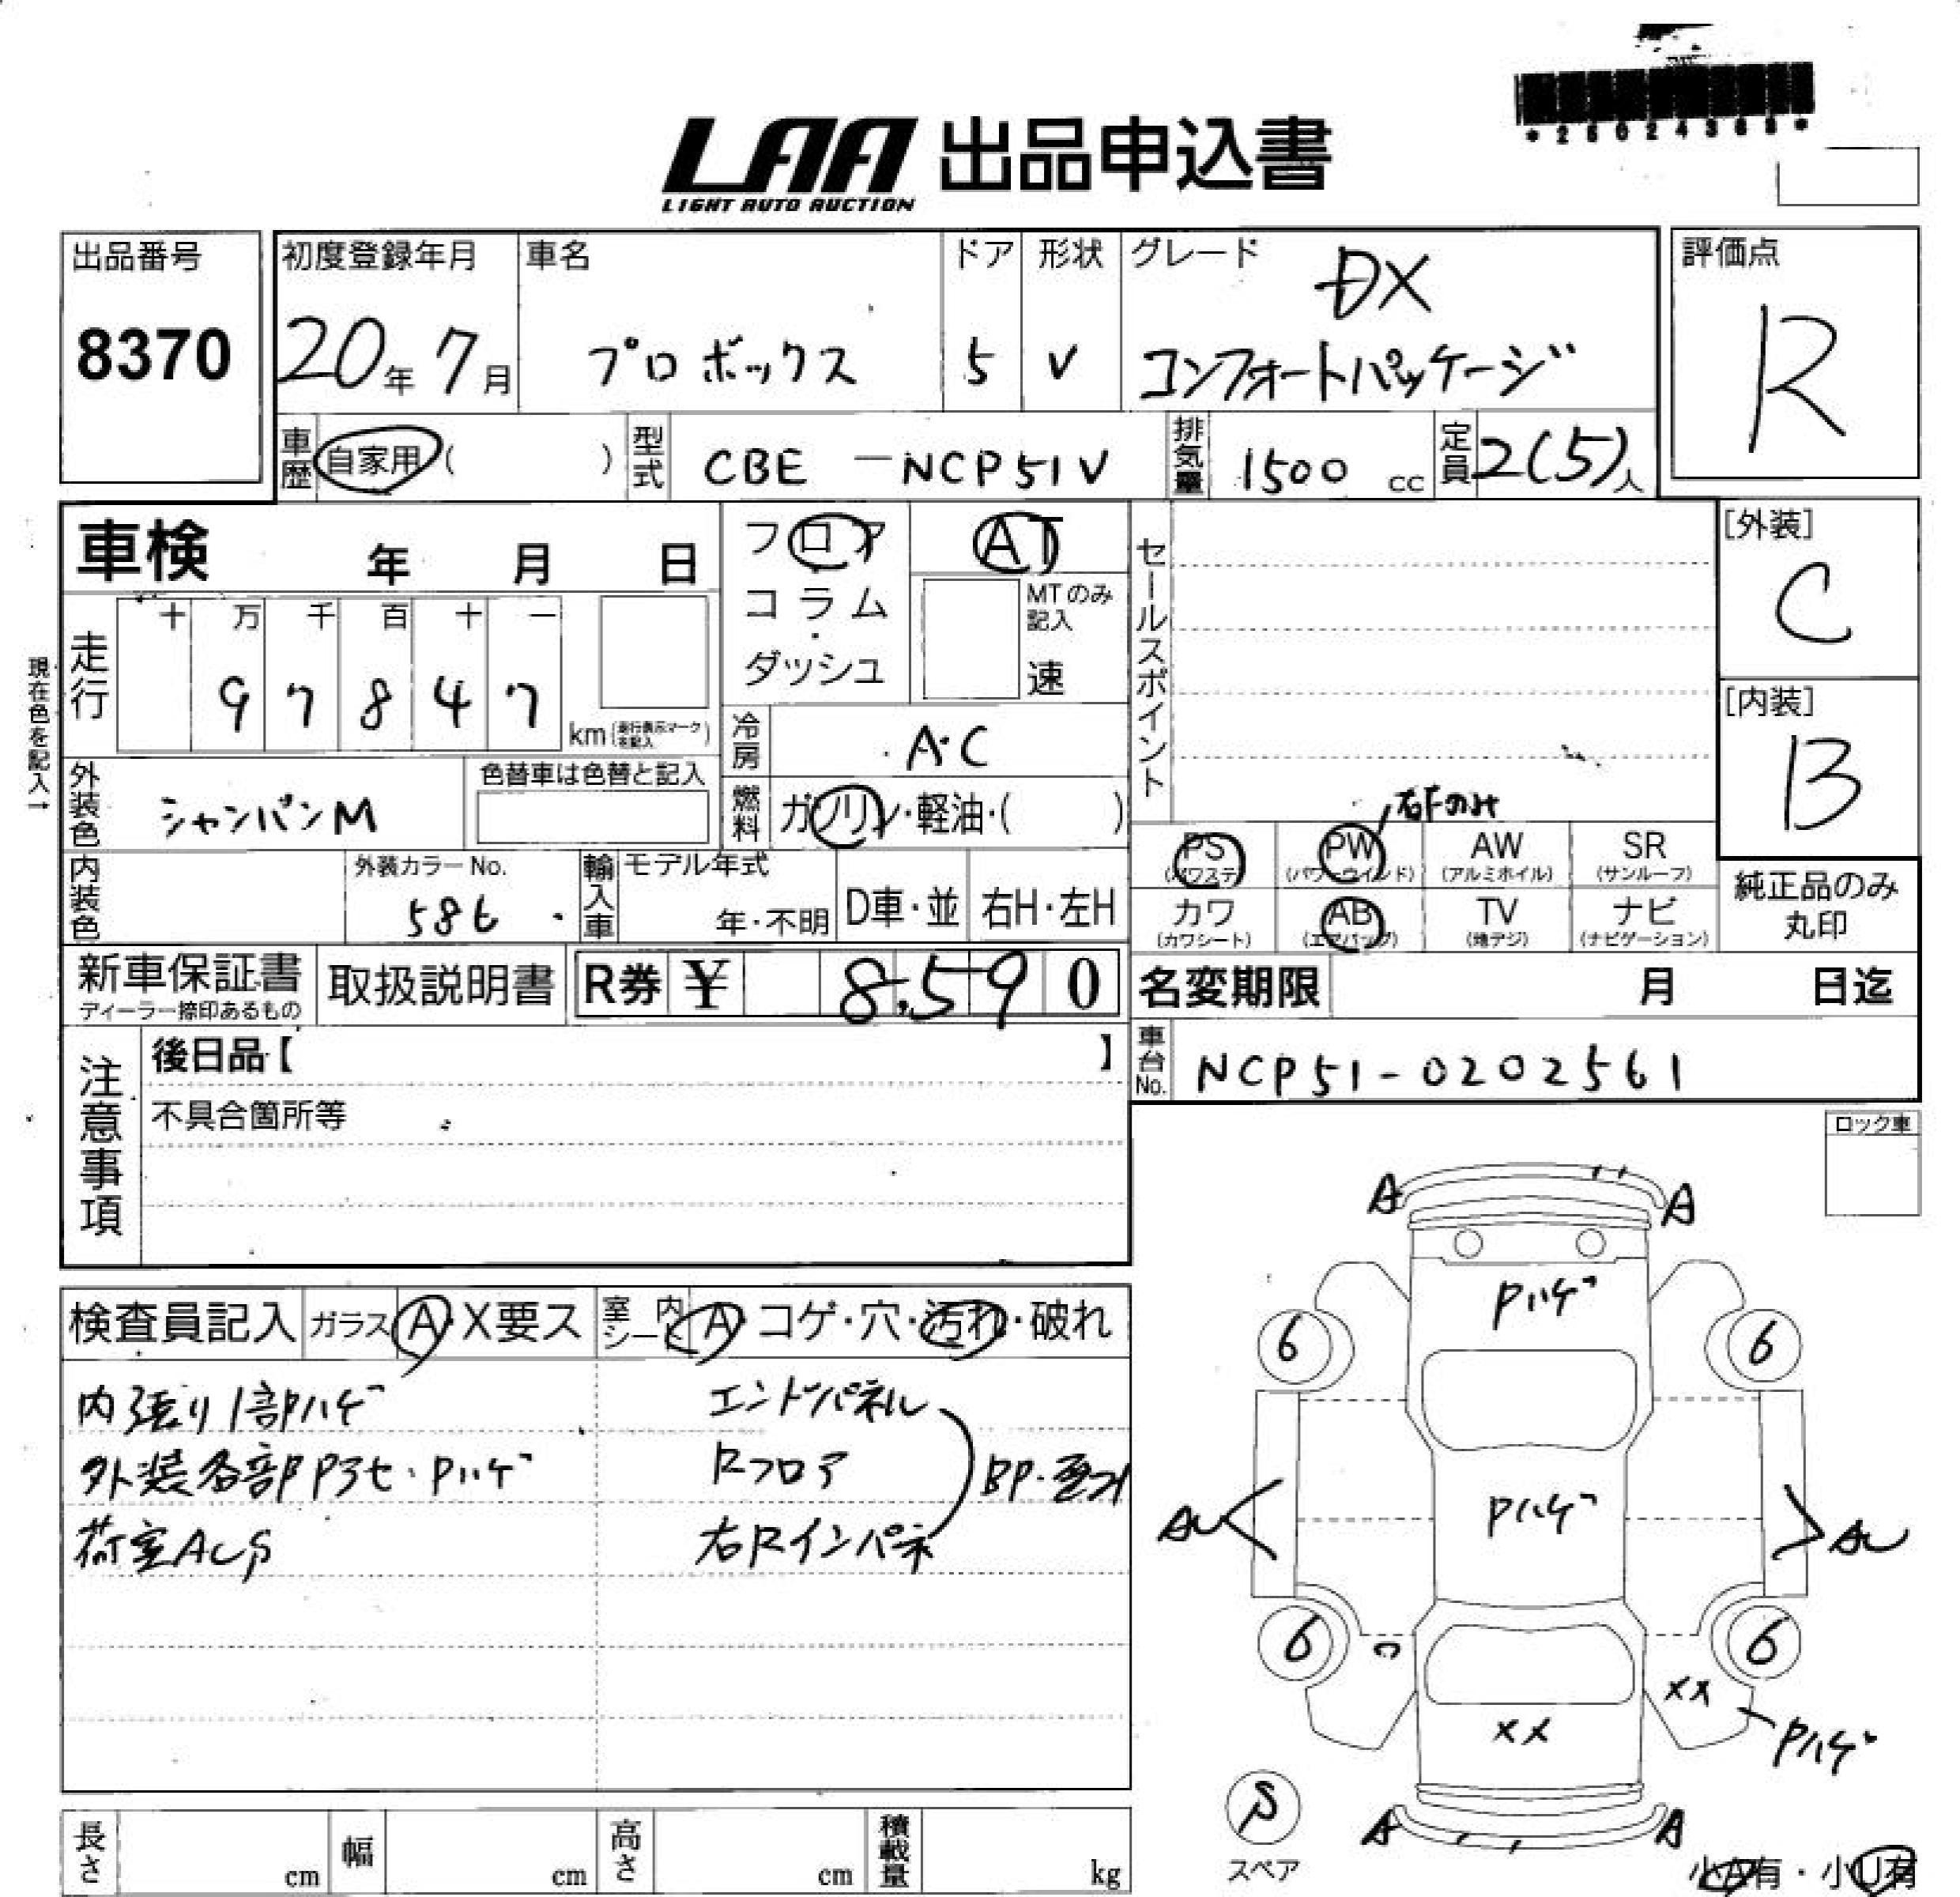 LAA 出品申込書
LIGHT AUTO AUCTION
出品番号
8370
初度登録年月
20年 7月
車名
プロボックス
ドア
5
形状
V
グレード
DX
コンフォートパッケージ
評価点
R
車歴
自家用 ( )
型式
CBE - NCP51V
排気量
1500 cc
定員
2(5)人
車検 年 月 日
走行
十 万 千 百 十 一
9 7 8 4 7
km (走行表示マークを記入)
現在色を記入→
フロア
コラム
ダッシュ
AT
MTのみ記入
速
冷房
A・C
燃料
ガソリン・軽油・( )
セールスポイント
右Fのみ
[外装]
C
[内装]
B
外装色
シャンパンM
色替車は色替と記入
内装色
外装カラーNo.
586
輸入車
モデル年式
年・不明
D車・並
右H・左H
PS
(パワステ)
PW
(パワーウインド)
AW
(アルミホイル)
SR
(サンルーフ)
カワ
(カワシート)
AB
(エアバッグ)
TV
(地デジ)
ナビ
(ナビゲーション)
純正品のみ
丸印
新車保証書
ディーラー捺印あるもの
取扱説明書
R券 ¥ 8,590
名変期限 月 日迄
車台No.
NCP51-0202561
注意事項
後日品【 】
不具合箇所等
ロック車
検査員記入
ガラス A・X要ス
室内シート A・コゲ・穴・汚れ・破れ
内張り1部ハゲ
外装各部Pヌセ・Pハゲ
荷室AUS
エンドパネル
Rフロア
右Rインパネ
BP・歪ミ
A A
Pハゲ
6 6
Pハゲ
AU AU
6 6
C
XX
XX
Pハゲ
S
スペア
A A
小A有・小U有
長さ cm
幅 cm
高さ cm
積載量 kg